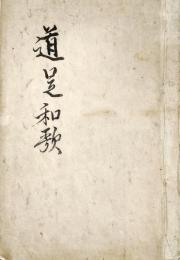 道足和歌